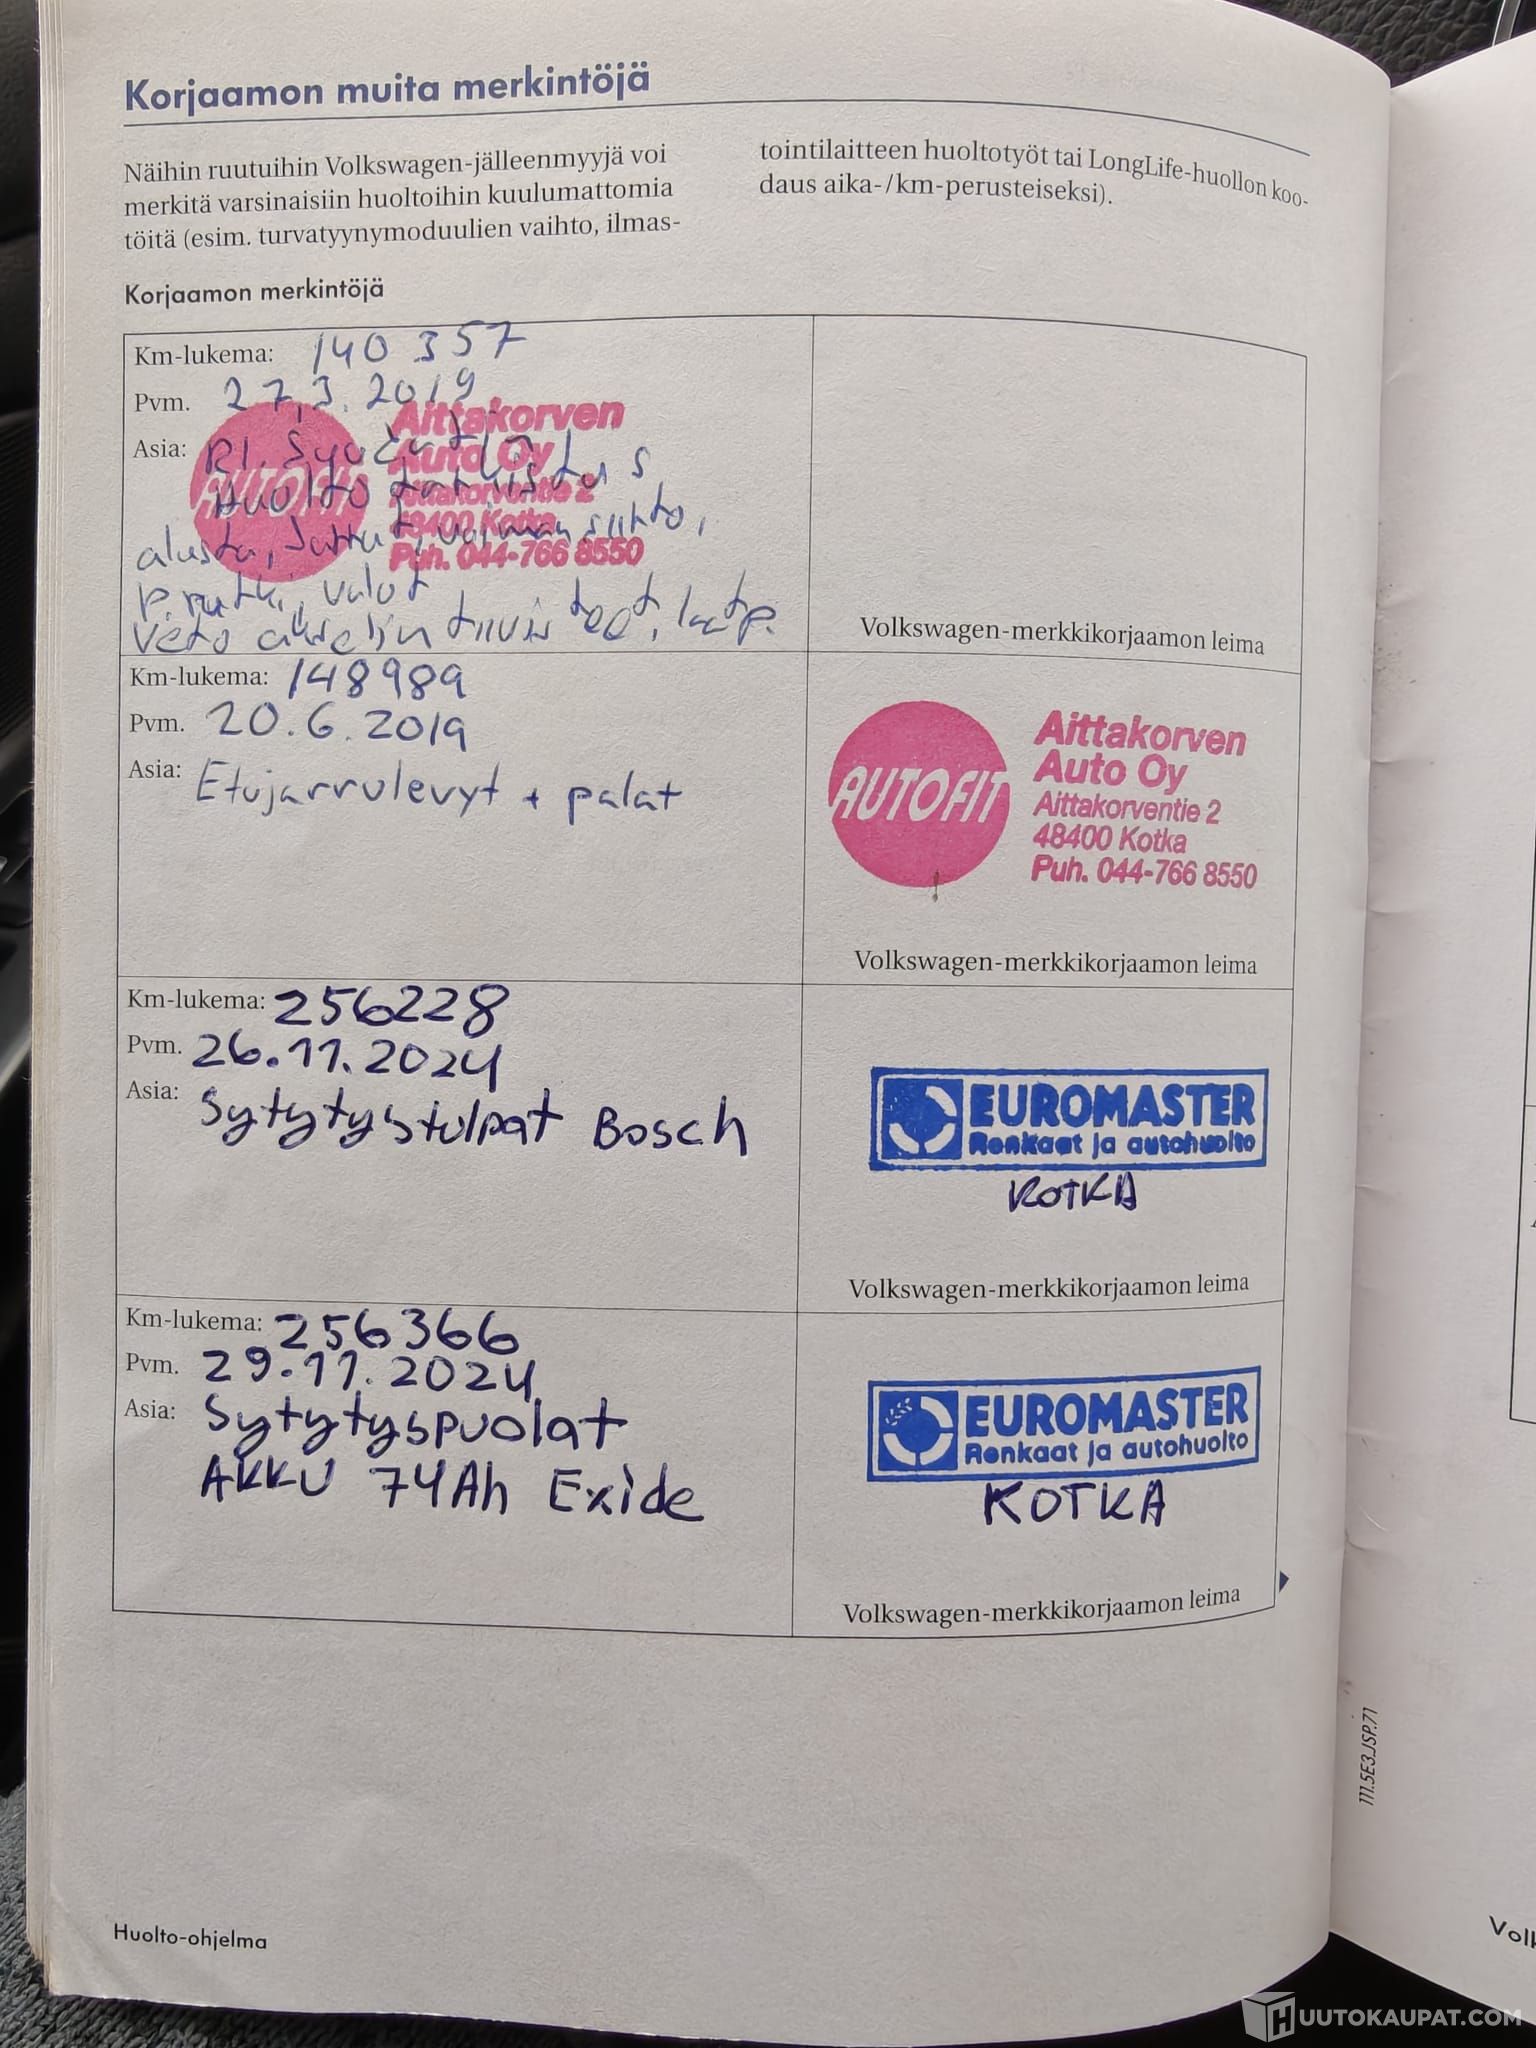 Korjaamon muita merkintöjä
Näihin ruutuihin Volkswagen-jälleenmyyjä voi
merkitä varsinaisiin huoltoihin kuulumattomia
töitä (esim. turvatyynymoduulien vaihto, ilmas-
tointilaitteen huoltotyöt tai LongLife-huollon koo-
daus aika-/km-perusteiseksi).
Korjaamon merkintöjä
Km-lukema: 140 357
Pvm. 27.3.2019
Asia:
Huolto tarkistus
alusta, voimansiirto,
p.putki, valot
Veto akselin tiivisteet,
AUTOFIT
Aittakorven
Auto Oy
Aittakorventie 2
48400 Kotka
Puh. 044-766 8550
Volkswagen-merkkikorjaamon leima
Km-lukema: 148989
Pvm. 20.6.2019
Asia: Etujarrulevyt + palat
AUTOFIT
Aittakorven
Auto Oy
Aittakorventie 2
48400 Kotka
Puh. 044-766 8550
Volkswagen-merkkikorjaamon leima
Km-lukema: 256228
Pvm. 26.11.2024
Asia: Sytytystulpat Bosch
EUROMASTER
Renkaat ja autohuolto
KOTKA
Volkswagen-merkkikorjaamon leima
Km-lukema: 256366
Pvm. 29.11.2024
Asia: Sytytyspuolat
AKKU 74Ah Exide
EUROMASTER
Renkaat ja autohuolto
KOTKA
Volkswagen-merkkikorjaamon leima
111.5E3.JSP.71
Huolto-ohjelma
Volk
HUUTOKAUPAT.COM